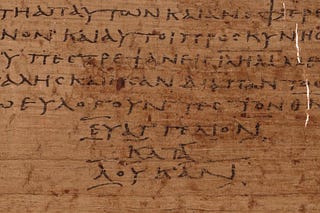 ΤΗ ΑΠ ΑΥΤΩΝ ΚΑΙ
ΝΟΝ ΚΑΙ ΑΥΤΟΙ ΠΡΟϹΚΥΝΗϹ
ΥΠΕϹΤΡΕΨΑΝ ΕΙϹ
ΑΛΗϹ ΚΑΙ ΗϹΑΝ ΔΙΑ
Ω ΕΥΛΟΓΟΥΝΤΕϹ ΤΟΝ ΘΝ
ΕΥΑΓΓΕΛΙΟΝ
ΚΑΤΑ
ΛΟΥΚΑΝ